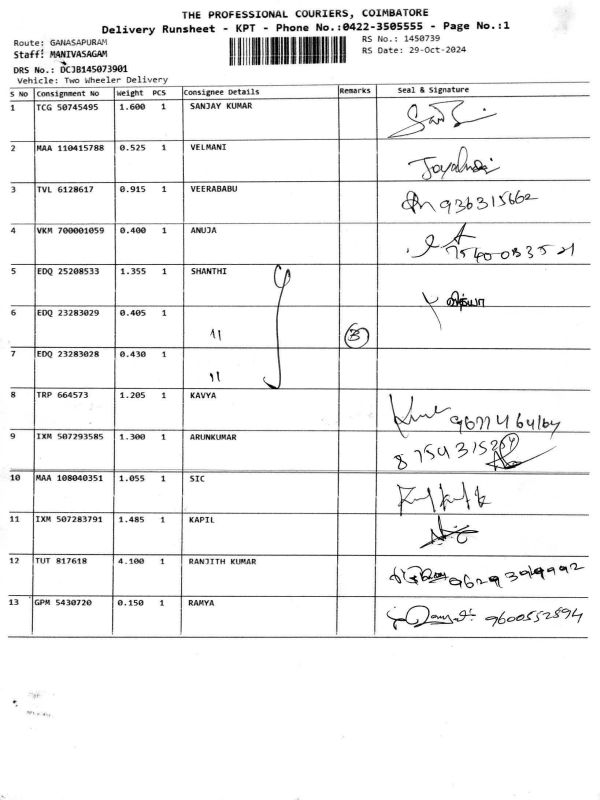 THE PROFESSIONAL COURIERS, COIMBATORE
Delivery Runsheet - KPT - Phone No.:0422-3505555 - Page No.:1
Route: GANASAPURAM
RS No.: 1450739
Staff: MANIVASAGAM
RS Date: 29-Oct-2024
DRS No.: DCJB145073901
Vehicle: Two Wheeler Delivery
S No Consignment No Weight PCS Consignee Details Remarks Seal & Signature
1 TCG 50745495 1.600 1 SANJAY KUMAR
2 MAA 110415788 0.525 1 VELMANI
3 TVL 6128617 0.915 1 VEERABABU 936315662
4 VKM 700001059 0.400 1 ANUJA
5 EDQ 25208533 1.355 1 SHANTHI
6 EDQ 23283029 0.405 1 11 3
7 EDQ 23283028 0.430 1 11
8 TRP 664573 1.205 1 KAVYA
9 IXM 507293585 1.300 1 ARUNKUMAR
10 MAA 108040351 1.055 1 SIC
11 IXM 507283791 1.485 1 KAPIL
12 TUT 817618 4.100 1 RANJITH KUMAR
13 GPM 5430720 0.150 1 RAMYA 9600552594